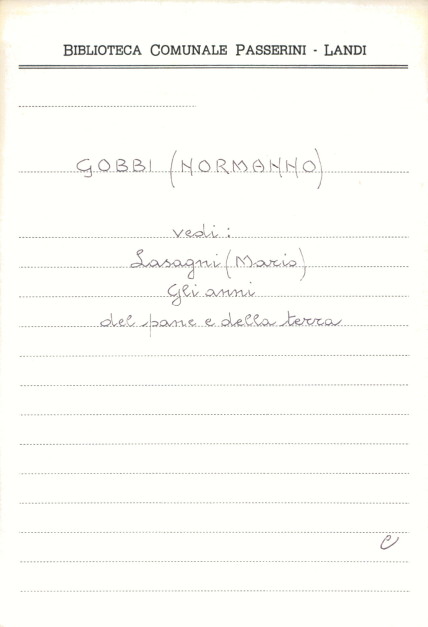 BIBLIOTECA COMUNALE PASSERINI - LANDI
GOBBI (NORMANNO)
vedi:
Lasagni (Mario)
Gli anni
del pane e della terra
C